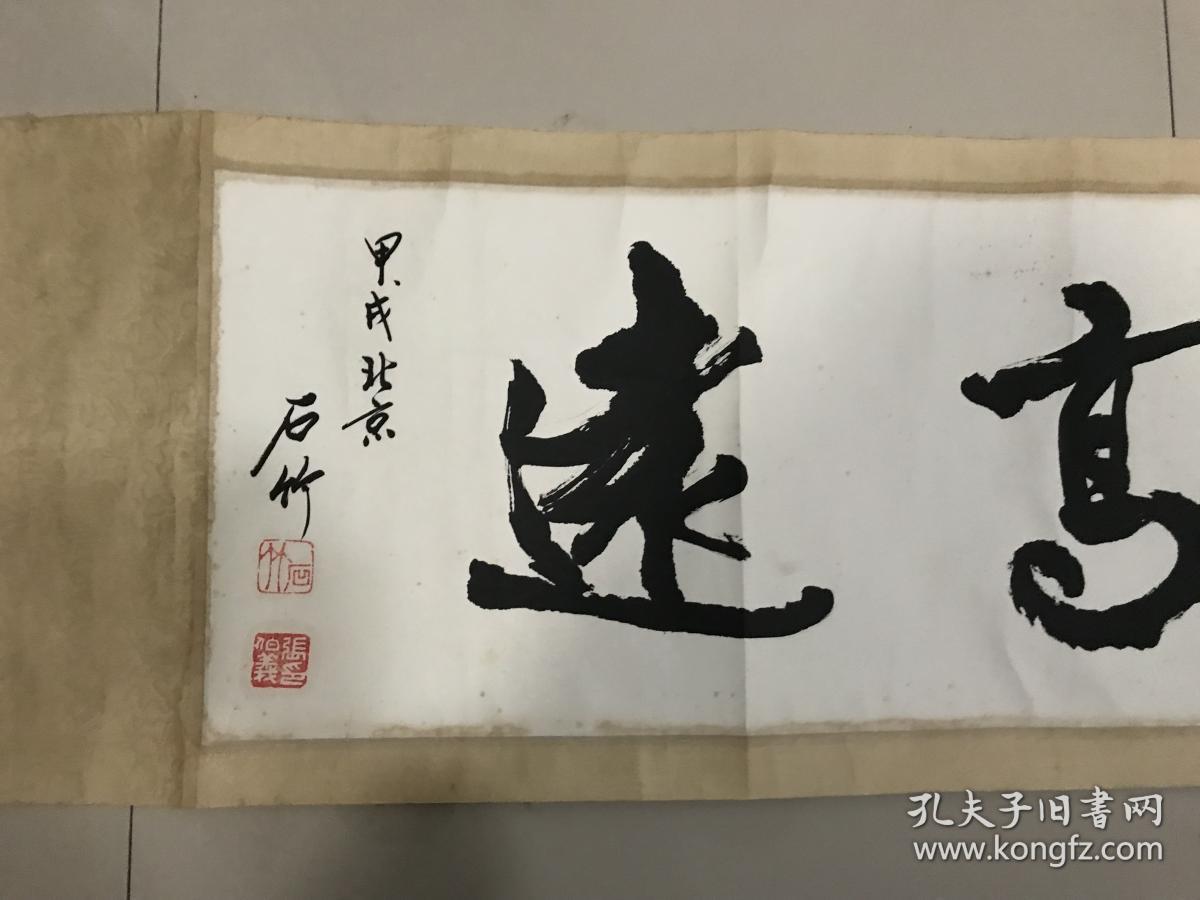 高遠
甲戌北京
石竹
石竹
張印伯義
孔夫子旧书网
www.kongfz.com